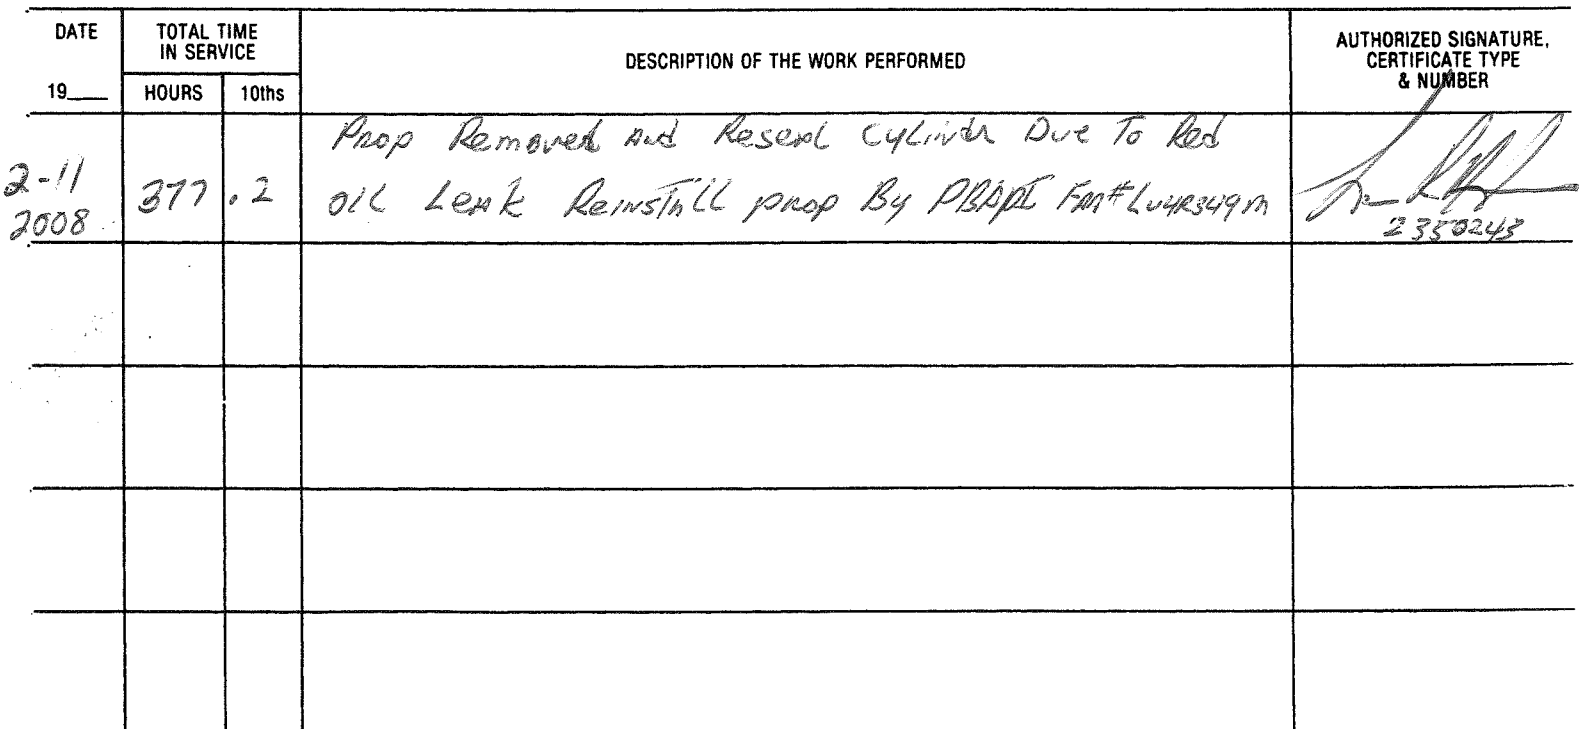 DATE
TOTAL TIME
IN SERVICE
DESCRIPTION OF THE WORK PERFORMED
AUTHORIZED SIGNATURE,
CERTIFICATE TYPE
& NUMBER
19
HOURS
10ths
Prop Removed And Reseal Cylinder Due To Red
2-11
2008
377
.2
oil Leak Reinstall prop By PBAPI Fm# LU4R349M
2350243